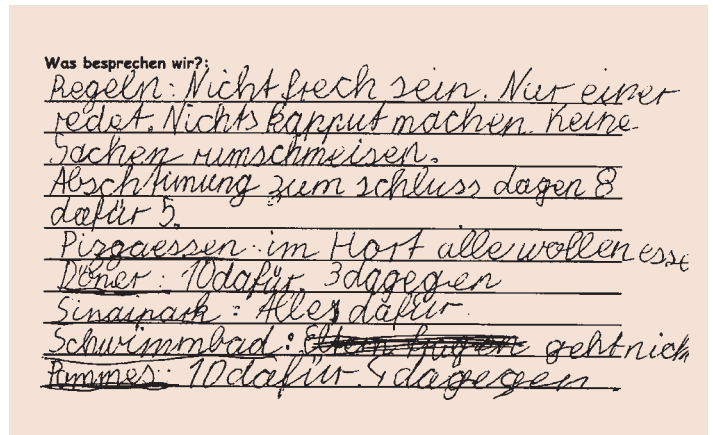 Was besprechen wir?:
Regeln: Nicht frech sein. Nur einer
redet. Nichts kapput machen. Keine
Sachen rumschmeisen.
Abschtimung zum schluss dagen 8
dafür 5.
Pizzaessen: im Hort alle wollen esse
Döner: 10 dafür. 3 dagegen
Sinaipark: Alles dafür
Schwimmbad: Eltern fragen geht nich
Pommes: 10 dafür. 4 dagegen.